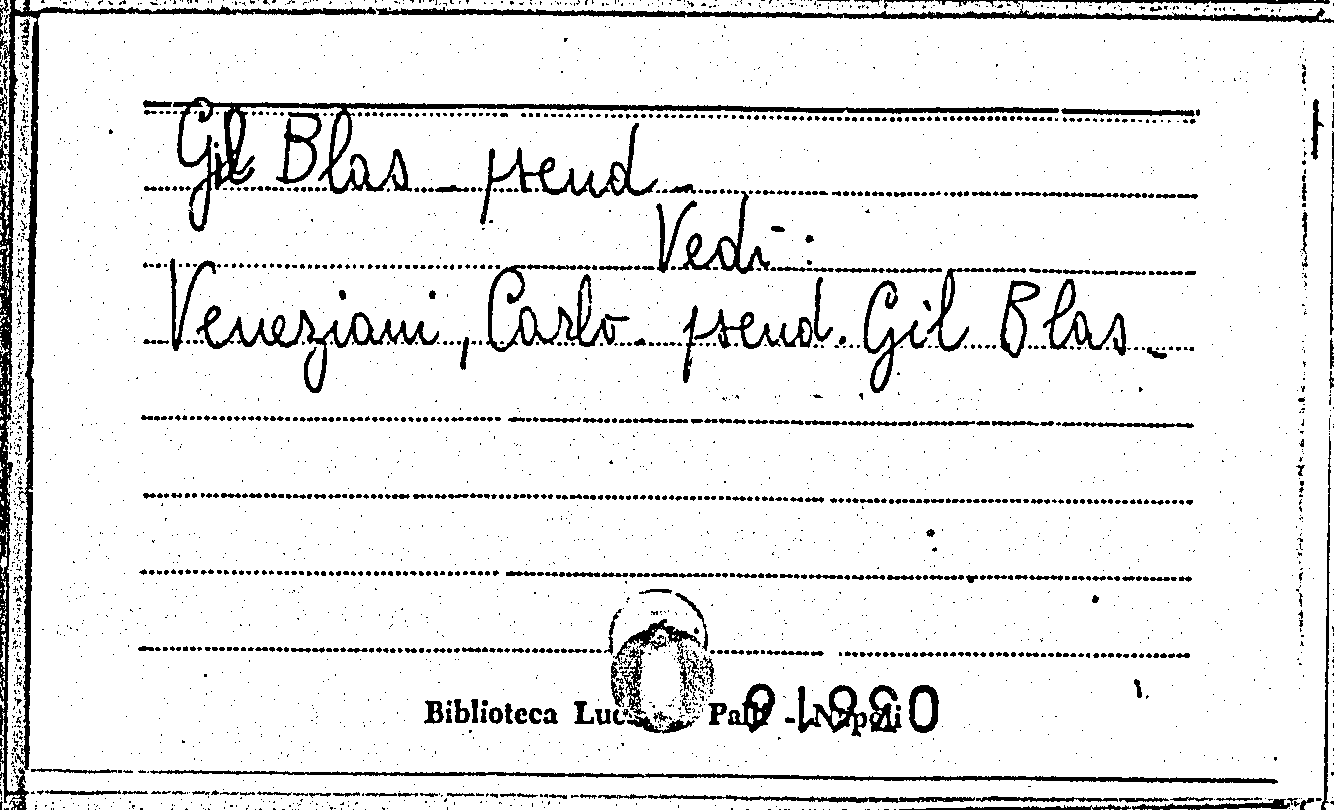 Gil Blas - pseud -
Vedi :
Veneziani, Carlo. pseud. Gil Blas -
Biblioteca - Napoli